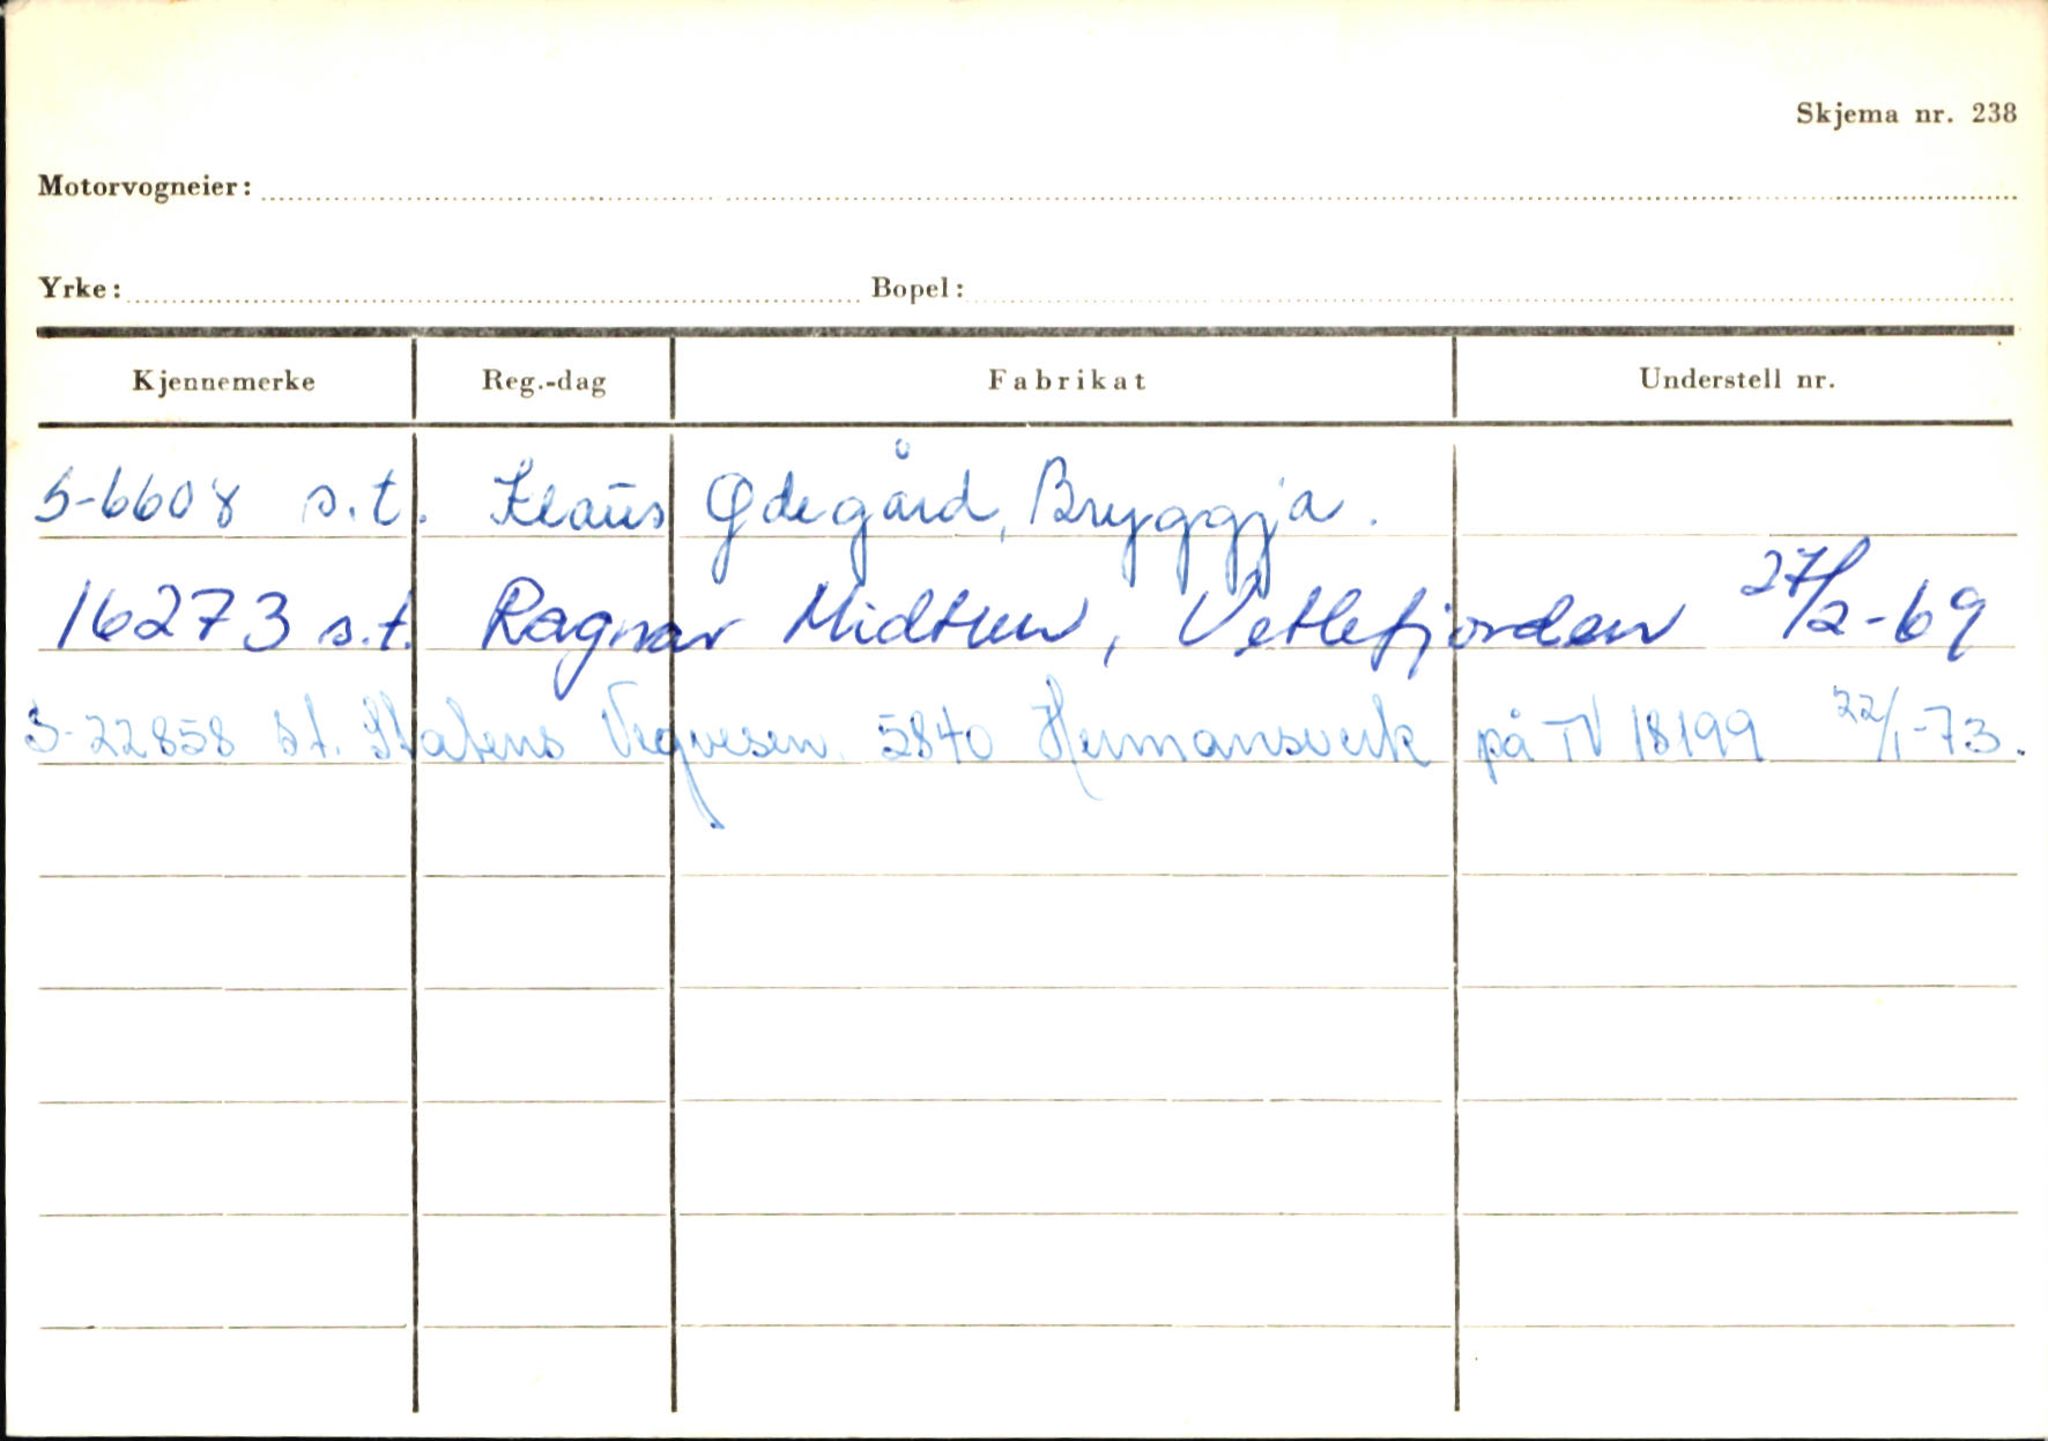 Skjema nr. 238
Motorvogneier:
Yrke: Bopel:
Kjennemerke Reg.-dag Fabrikat Understell nr.
S-6608 s.t. Klaus Ødegård, Bryggja.
16273 s.t. Ragnar Midtun, Vetlefjorden 27/2-69
S-22858 st. Statens Vegvesen 5840 Hermansverk på TV 18199 22/1-73.